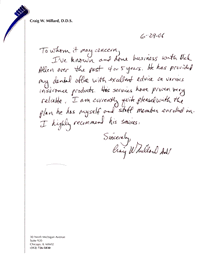 Craig W. Millard, D.D.S.
6-28-06
To whom it may concern,
I've known and done business with Bob
Allen over the past 4 or 5 years. He has provided
my dental office with excellent advice on various
insurance products. His services have proven very
reliable. I am currently quite pleased with the
plan he has myself and staff member enrolled in.
I highly recommend his services.
Sincerely,
Craig W Millard DDS
30 North Michigan Avenue
Chicago, IL 60602